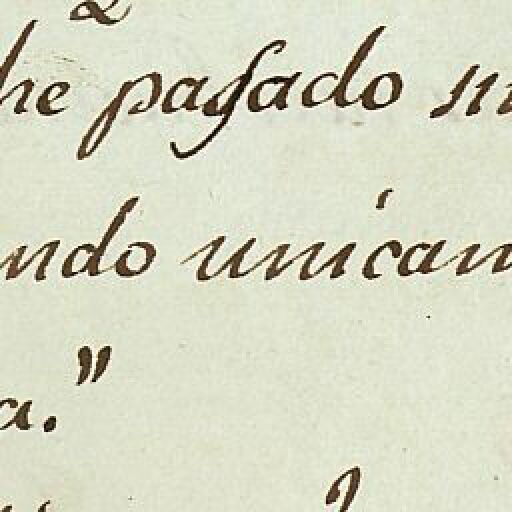 he pasado
ndo unicam
a."